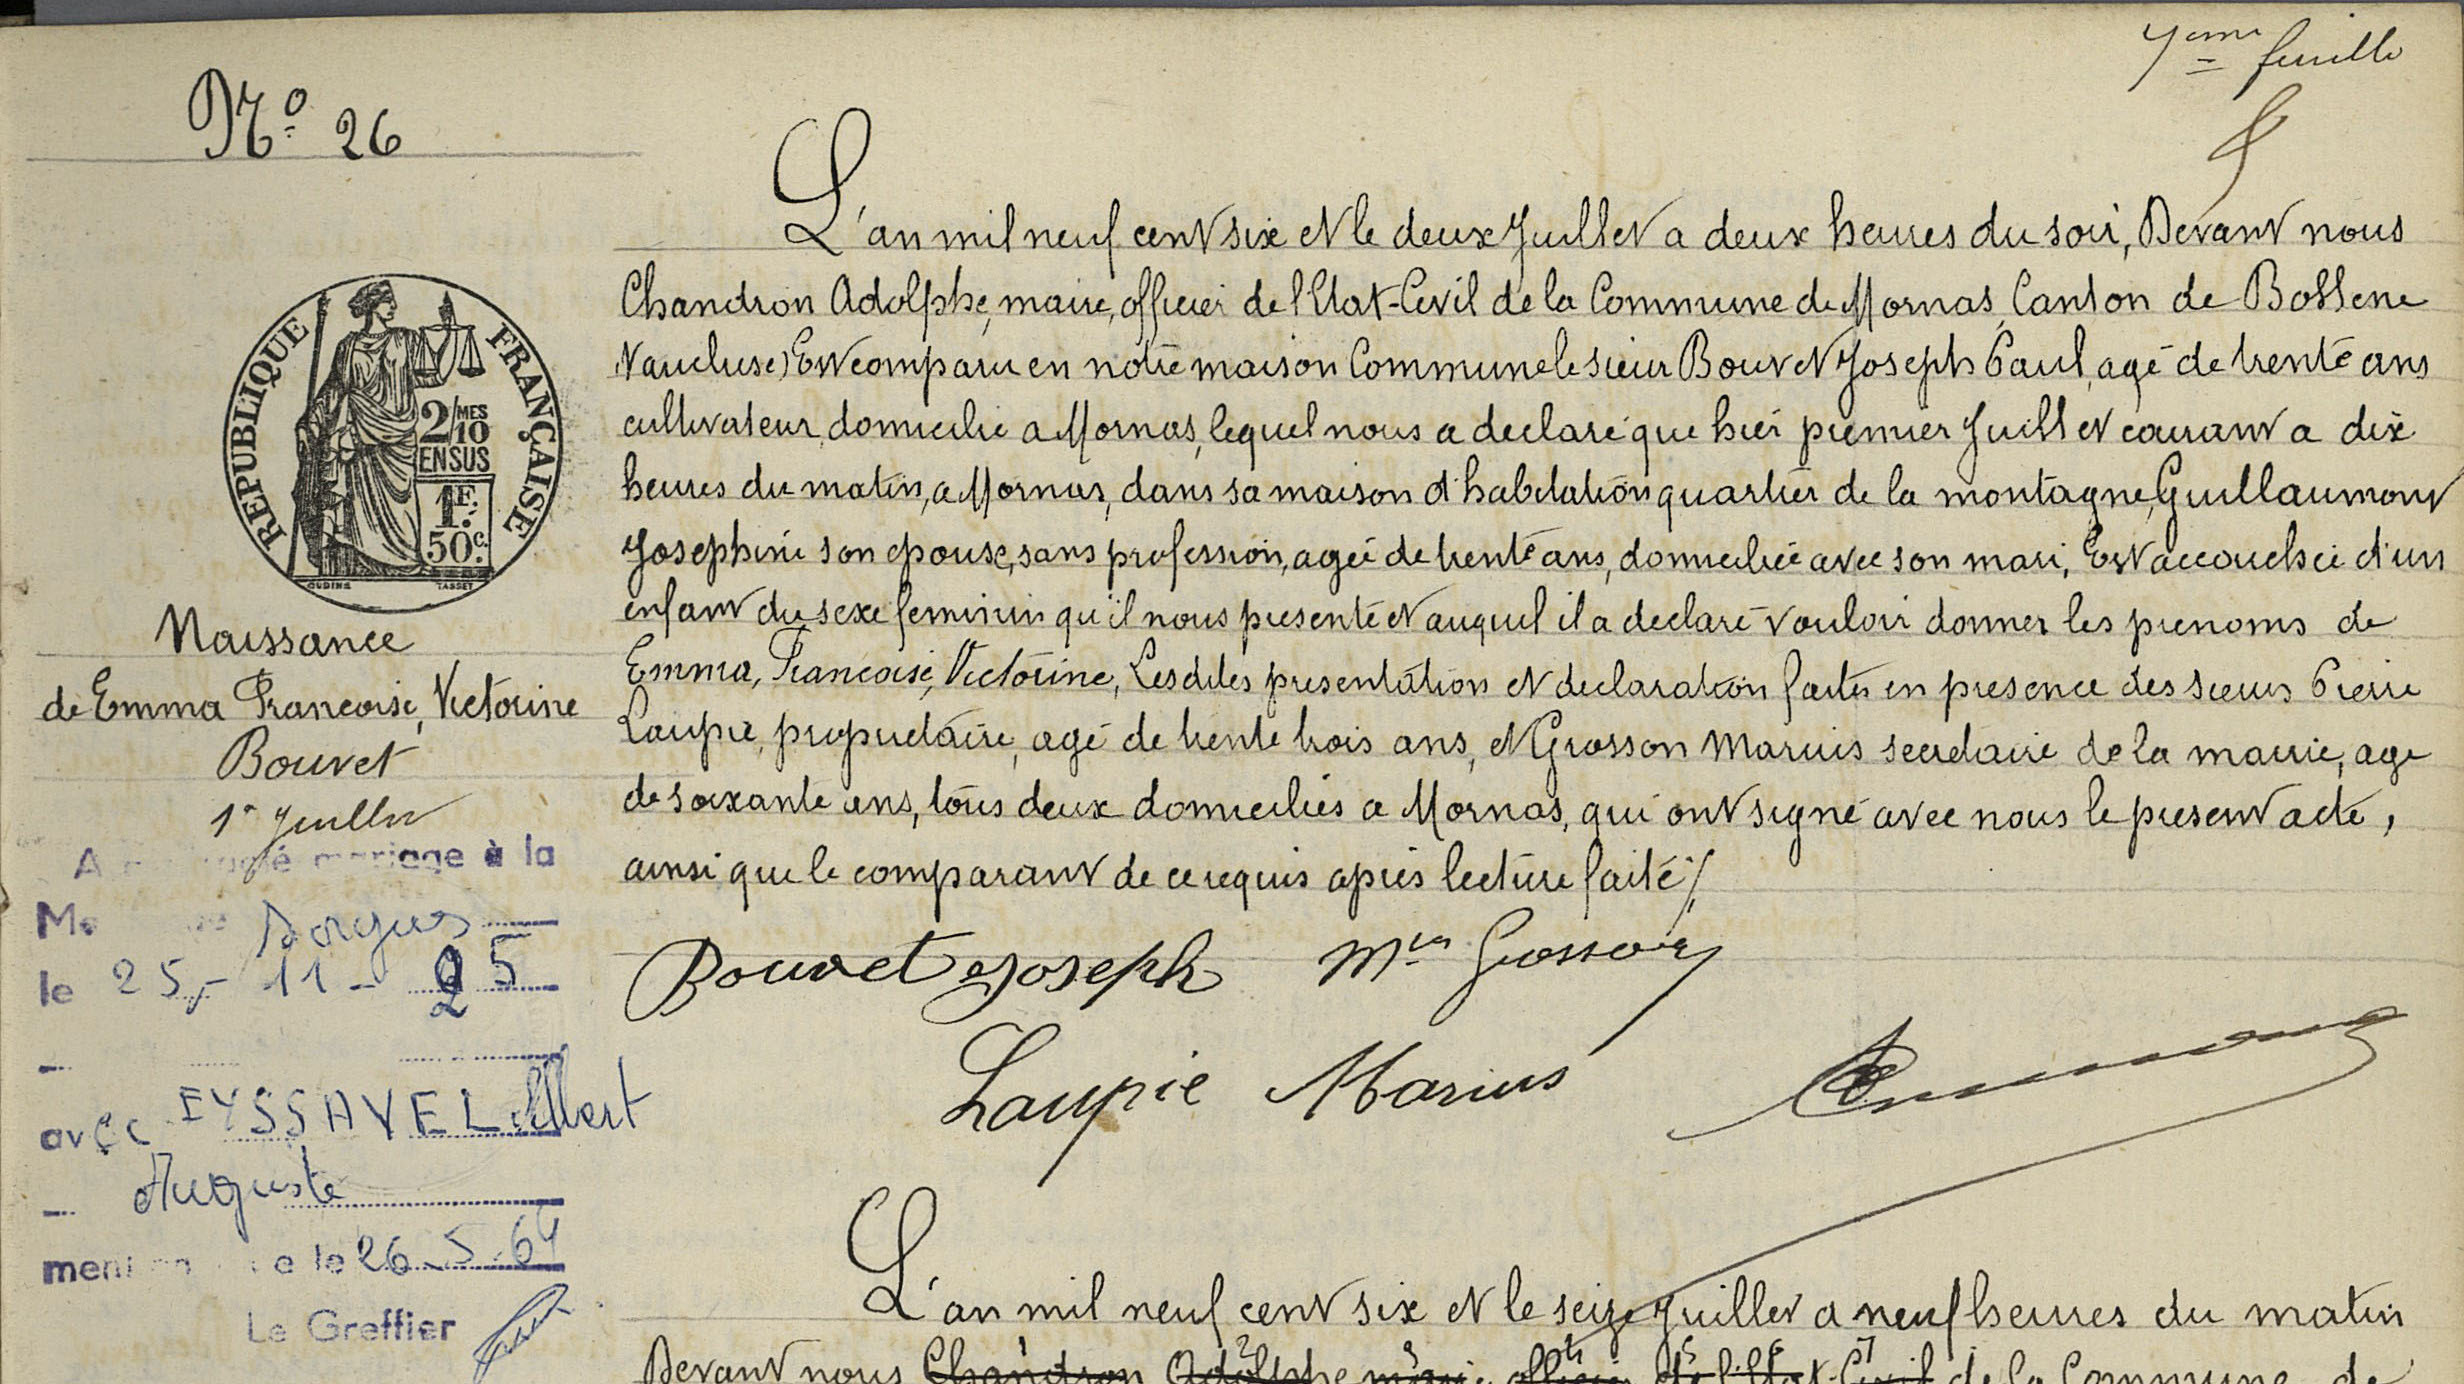 7eme feuille
No 26
L'an mil neuf cent six et le deux Juillet a deux heures du soir, Devant nous
Chandron Adolphe, maire, officier de l'Etat-Civil de la Commune de Mornas, Canton de Bollene
Vaucluse) Est comparu en notre maison Commune le sieur Bouvet Joseph Paul, agé de trente ans
cultivateur, domicilié a Mornas, lequel nous a declaré que hier premier Juillet courant a dix
heures du matin, a Mornas, dans sa maison d'habitation quartier de la montagne, Guillaumont
Josephine son epouse, sans profession, agée de trente ans, domiciliée avec son mari, Est accouchée d'un
enfant du sexe feminin qu'il nous presente et auquel il a declaré vouloir donner les prenoms de
Emma, Francoise, Victorine, Lesdites presentation et declaration faites en presence des sieurs Pierre
Laupie, propriétaire, agé de trente trois ans, et Grosson Marius secretaire de la mairie, age
de soixante ans, tous deux domiciliés a Mornas, qui ont signé avec nous le present acte,
ainsi que le comparant de ce requis après lecture faite /.
REPUBLIQUE FRANÇAISE
2/10 MES
EN SUS
1F.
50c.
OUDINE TASSET
Naissance
de Emma Francoise, Victorine
Bouvet
1er Juillet
mariage à la
Sorgues
le 25 - 11 - 25
avec EYSSAVEL Albert
Auguste
le 26-5-64
Le Greffier
Bouvet Joseph Mius Grosson
Laupie Marius
L'an mil neuf cent six et le seize Juillet a neuf heures du matin
Devant nous Chandron Adolphe maire officier de l'Etat-Civil de la Commune de